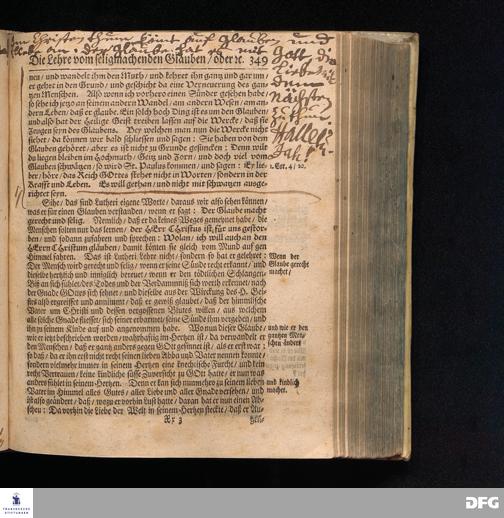 im Christenthum kömt auf Glauben und
Liebe an. der Glaube hat es mit
Gott die
Liebe mit
dem
nächsten
zu thun.
Hallelu-
Jah!
Die Lehre vom seligmachenden Glauben / oder ꝛc. 349
nen / und wandelt ihm den Muth / und kehret ihn gantz und gar um /
er gehet in den Grund / und geschicht da eine Verneuerung des gan-
tzen Menschen. Also wenn ich vorhero einen Sünder gesehen habe /
so sehe ich jetzo an seinem andern Wandel / am andern Wesen / am an-
dern Leben / daß er glaube. Ein solch hoch Ding ist es um den Glauben /
und also hat der Heilige Geist treiben lassen auf die Wercke / daß sie
Zeugen seyn des Glaubens. Bey welchen man nun die Wercke nicht
siehet / da können wir bald schliessen und sagen: Sie haben von dem
Glauben gehöret / aber es ist nicht zu Grunde gesuncken: Denn wilt
du liegen bleiben im Hochmuth / Geitz und Zorn / und doch viel vom
Glauben schwätzen / so wird St. Paulus kommen / und sagen: Er lie-
ber / höre / das Reich GOttes stehet nicht in Worten / sondern in der
Krafft und Leben. Es will gethan / und nicht mit schwatzen ausge-
richtet seyn.
1. Cor. 4 / 20.
Sihe / das sind Lutheri eigene Worte / daraus wir also sehen können /
was er für einen Glauben verstanden / wenn er sagt: Der Glaube macht
gerecht und selig. Nemlich / daß er da keines Weges gemeynet habe / die
Menschen solten nur das lernen / der HErr Christus ist für uns gestor-
ben / und sodann zufahren und sprechen: Wolan / ich will auch an den
HErrn Christum glauben / damit könten sie gleich vom Mund auf gen
Himmel fahren. Das ist Lutheri Lehre nicht / sondern so hat er gelehret:
Der Mensch wird gerecht und selig / wenn er seine Sünde recht erkannt / und
dieselbe hertzlich und inniglich bereuet / wenn er den tödtlichen Schlangen-
Biß an sich fühlet / des Todes und der Verdammniß sich werth erkennet / nach
der Gnade GOttes sich sehnet / und dieselbe aus der Wirckung des H. Gei-
stes also ergreiffet und annimmt / daß er gewiß glaubet / daß der himmlische
Vater um Christi und dessen vergossenen Blutes willen / aus welchem
alle solche Gnade fliesset / sich seiner erbarmet / seine Sünde ihm vergeben / und
ihn zu seinem Kinde auf und angenommen habe. Wo nun dieser Glaube /
wie er jetzt beschrieben worden / wahrhafftig im Hertzen ist / da verwandelt er
den Menschen / daß er gantz anders gegen GOtt gesinnet ist / als er erst war:
so daß / da er ihn erst nicht recht seinen lieben Abba und Vater nennen konnte /
sondern vielmehr immer in seinem Hertzen eine knechtische Furcht / und kein
recht Vertrauen / keine kindliche süsse Zuversicht zu GOtt hatte / er nun was
anders fühlet in seinem Hertzen. Denn er kan sich nunmehro zu seinem lieben
Vater im Himmel alles Gutes / aller Liebe und aller Gnade versehen / und
ist also geändert / daß / wozu er vorhin Lust hatte / daran hat er nun einen Ab-
scheu: Da vorhin die Liebe der Welt in seinem Hertzen steckte / daß er Au-
Xx 3
gen-
Wenn der
Glaube gerecht
machet /
und wie er den
gantzen Men-
schen ändert
und kindlich
machet.
FRANCKESCHE
STIFTUNGEN
DFG